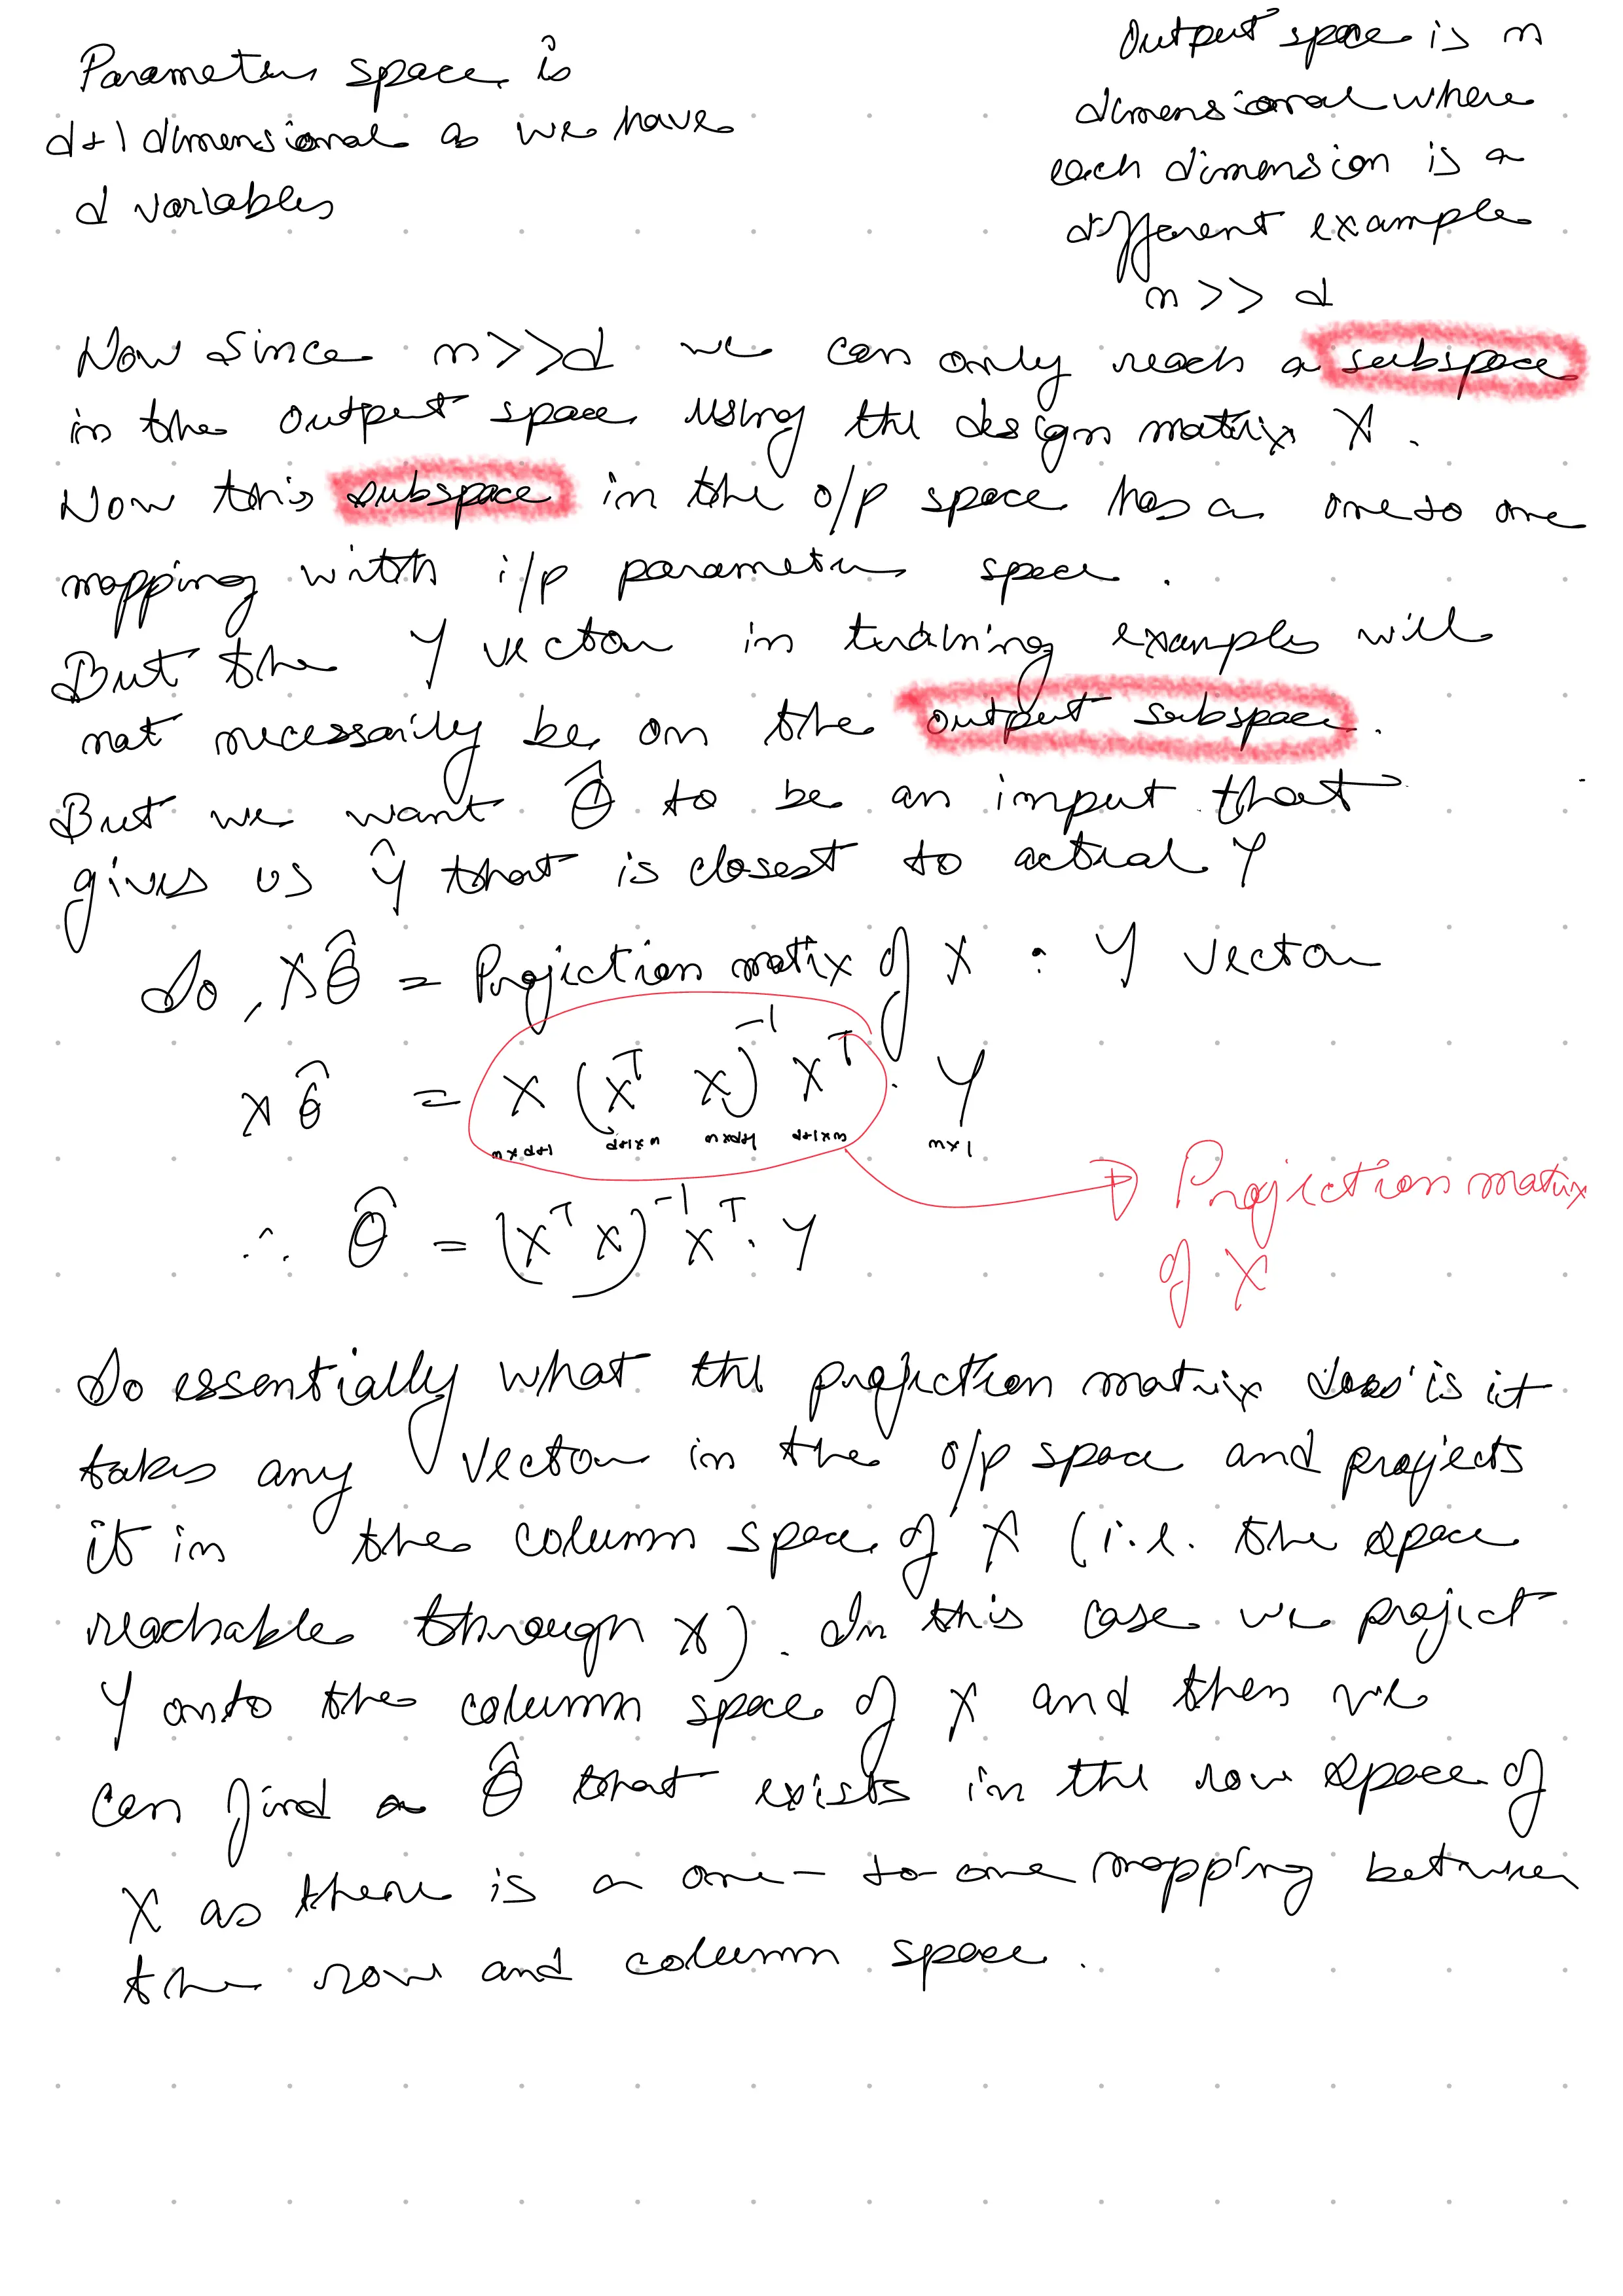 Parameter space is
d+1 dimensional as we have
d variables
Output space is n
dimensional where
each dimension is a
different example
n >> d
Now since n>>d we can only reach a subspace
in the output space using the design matrix X.
Now this subspace in the o/p space has a one to one
mapping with i/p parameter space.
But the Y vector in training examples will
not necessarily be on the output subspace.
But we want θ̂ to be an input that
gives us ŷ that is closest to actual Y
So, Xθ̂ = Projection matrix of X · Y vector
X θ̂ = X (X^T X)^-1 X^T · Y
n×d+1 d+1×n n×d+1 d+1×n n×1
Projection matrix
of X
∴ θ̂ = (X^T X)^-1 X^T · Y
So essentially what the projection matrix does is it
takes any vector in the o/p space and projects
it in the column space of X (i.e. the space
reachable through X). In this case we project
Y onto the column space of X and then we
can find a θ̂ that exists in the row space of
X as there is a one-to-one mapping between
the row and column space.